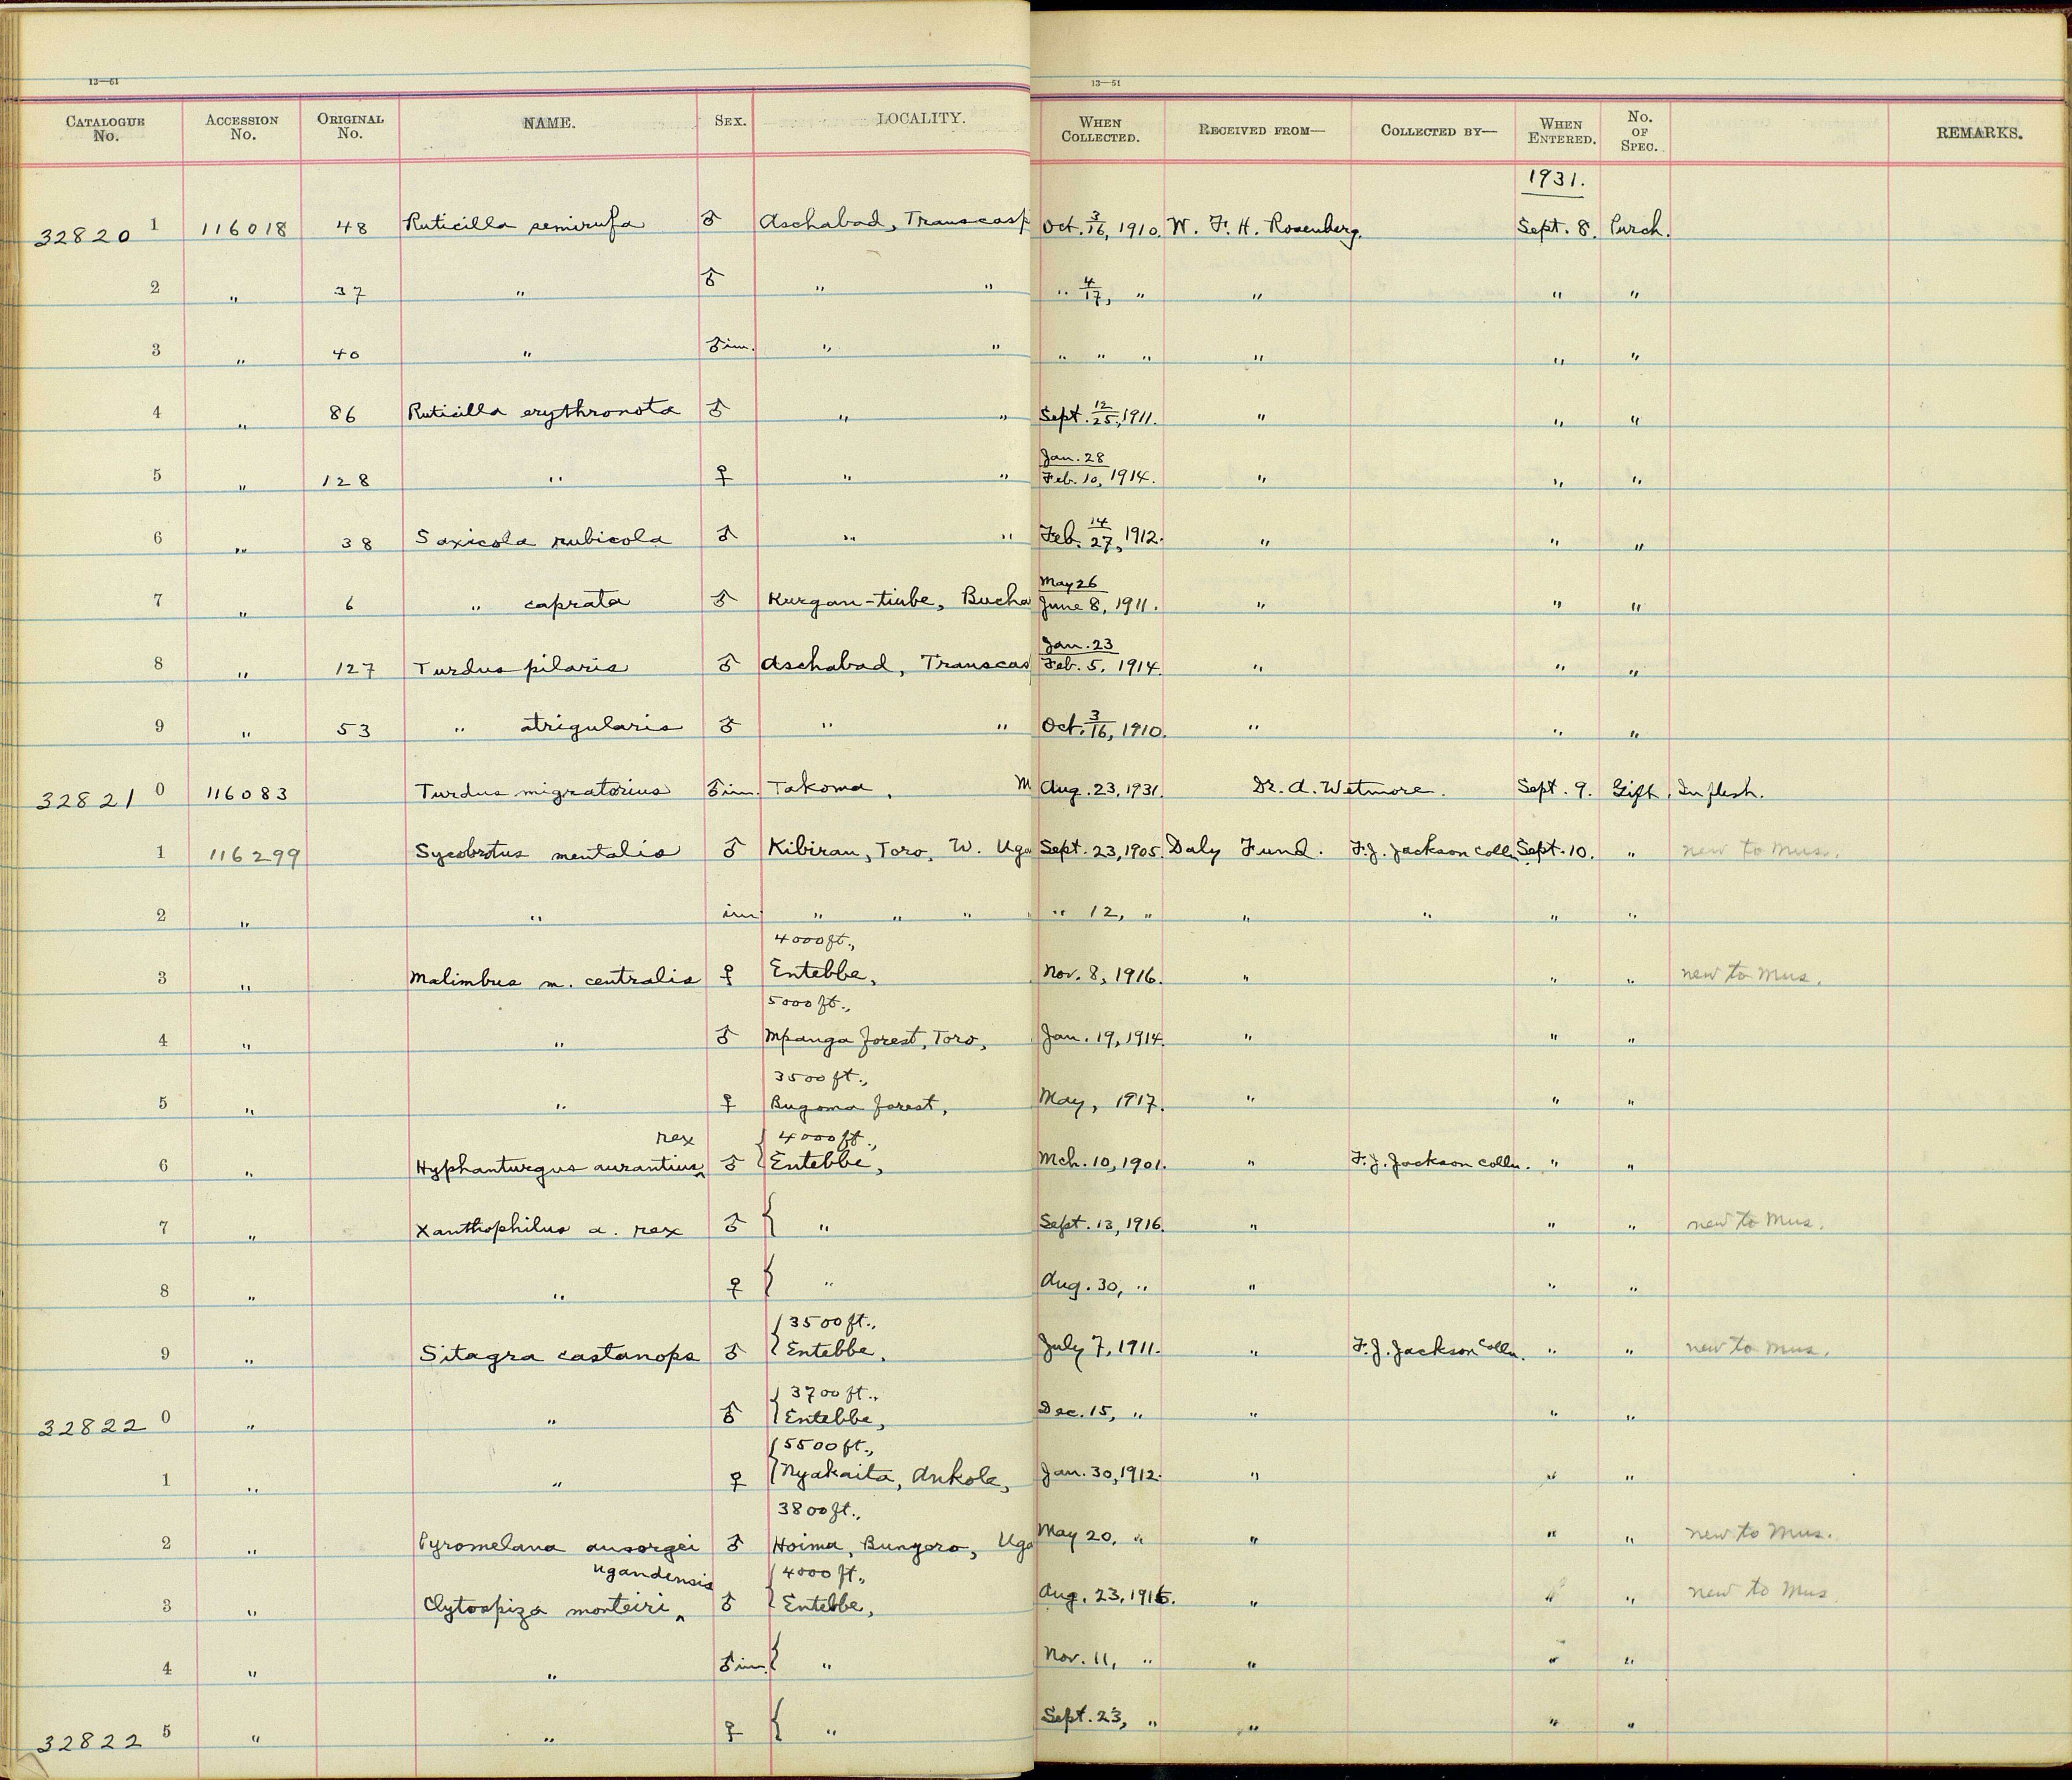 13—51 13—51
CATALOGUE No. ACCESSION No. ORIGINAL No. NAME. SEX. LOCALITY. WHEN COLLECTED. RECEIVED FROM— COLLECTED BY— WHEN ENTERED. No. OF SPEC. REMARKS.
1931.
32820 1 116018 48 Ruticilla semirufa ♂ Aschabad, Transcasp Oct. 3/16, 1910. W. F. H. Rosenberg. Sept. 8. Purch.
2 " 37 " ♂ " " " 4/17, " " " "
3 " 40 " ♂ im. " " " " " " " "
4 " 86 Ruticilla erythronota ♂ " " Sept. 12/25, 1911. " " "
5 " 128 " ♀ " " Jan. 28/Feb. 10, 1914. " " "
6 " 38 Saxicola rubicola ♂ " " Feb. 14/27, 1912. " " "
7 " 6 " caprata ♂ Kurgan-tiube, Bucha May 26/June 8, 1911. " " "
8 " 127 Turdus pilaris ♂ Aschabad, Transcas Jan. 23/Feb. 5, 1914. " " "
9 " 53 " atrigularis ♂ " " Oct. 3/16, 1910. " " "
32821 0 116083 Turdus migratorius ♂ im. Takoma, M Aug. 23, 1931. Dr. A. Wetmore. Sept. 9. Gift. In flesh.
1 116299 Sycobrotus mentalis ♂ Kibiran, Toro, W. Uga Sept. 23, 1905. Daly Fund. F. J. Jackson Colln Sept. 10. " new to Mus.
2 " " im " " " " 12, " " " " "
3 " Malimbus m. centralis ♀ 4000 ft., Entebbe, Nov. 8, 1916. " " " new to Mus.
4 " " ♂ 5000 ft., Mpanga Forest, Toro, Jan. 19, 1914. " " "
5 " " ♀ 3500 ft., Bugoma Forest, May, 1917. " " "
6 " Hyphanturgus aurantius ^ rex ♂ { 4000 ft., Entebbe, Mch. 10, 1901. " F. J. Jackson colln. " "
7 " Xanthophilus a. rex ♂ { " Sept. 13, 1916. " " " new to Mus.
8 " " ♀ { " Aug. 30, " " " "
9 " Sitagra castanops ♂ { 3500 ft., Entebbe, July 7, 1911. " F. J. Jackson Colln. " " new to Mus.
32822 0 " " ♂ { 3700 ft., Entebbe, Dec. 15, " " " "
1 " " ♀ { 5500 ft., Nyakaita, Ankole, Jan. 30, 1912. " " "
2 " Pyromelana ansorgei ♂ 3800 ft., Hoima, Bunyoro, Uga May 20, " " " " new to Mus.
3 " Clytospiza monteiri ^ ugandensis ♂ { 4000 ft., Entebbe, Aug. 23, 1916. " " " new to Mus
4 " " ♂ im. { " Nov. 11, " " " "
32822 5 " " ♀ { " Sept. 23, " " " "